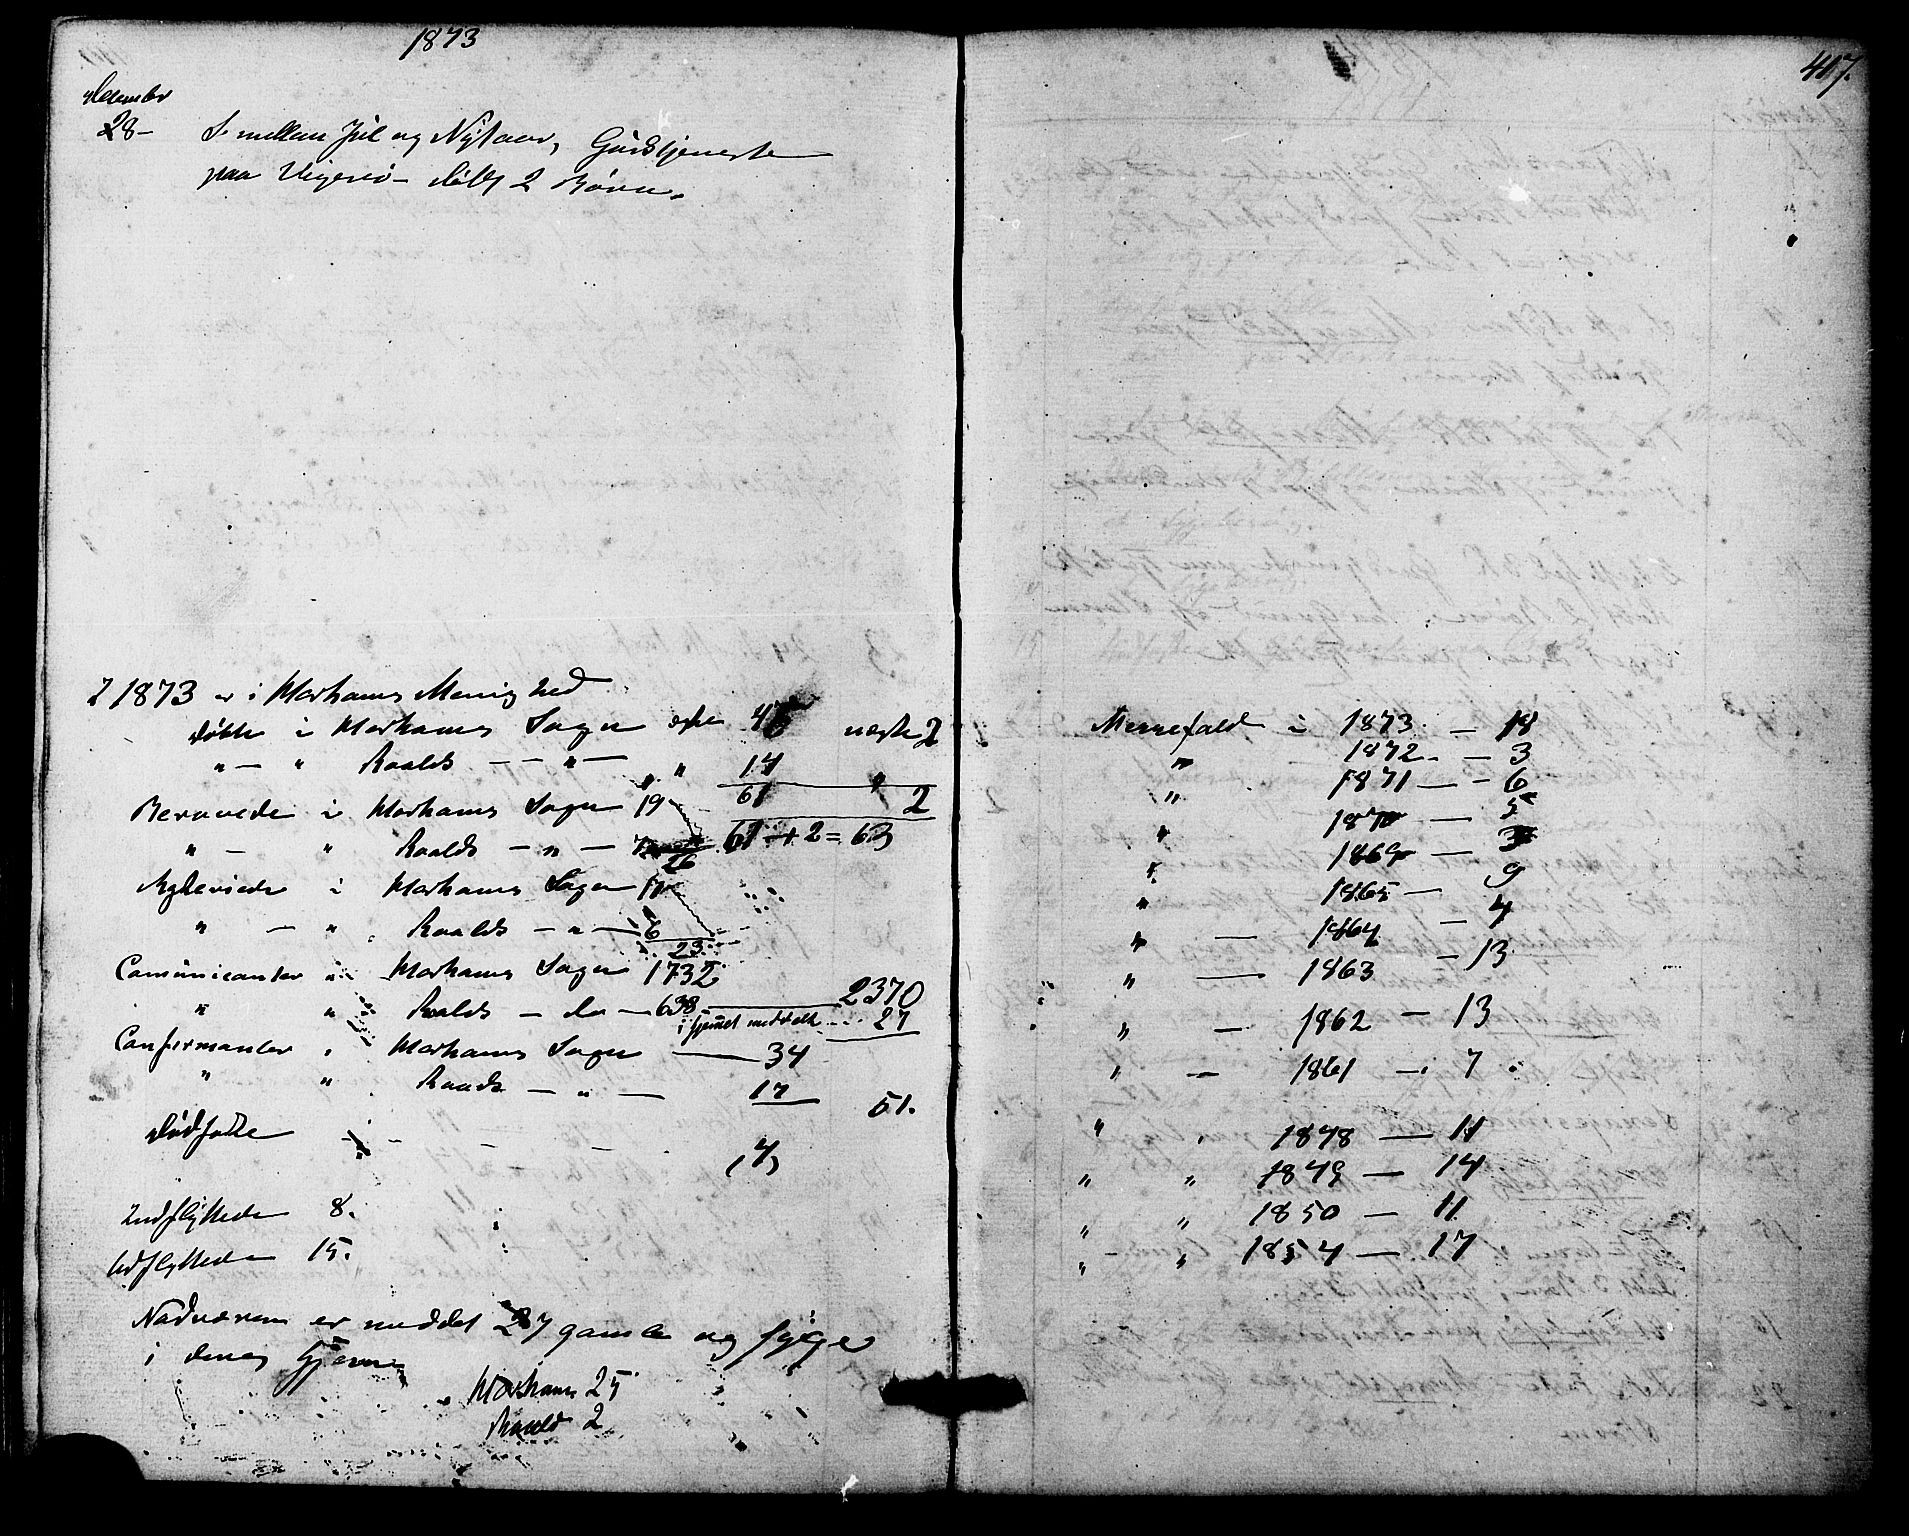 1873
December
28 - S. mellem Jul og Nytaar, Gudstjeneste
paa Vigerø - døbt 2 Børn.
I 1873 er i Harhams Menighed
døbte i Harhams Sogn ægte 46 uægte 2
" — " Roalds — " — " 14 "
61 2
61 + 2 = 63
Begravede i Harhams Sogn 19
" — " Roalds — " — 7
26
Ægteviede i Harhams Sogn 17
" — " Roalds — " — 6
23
Comunicanter i Harhams Sogn 1732
" " Roalds — do — 638 — 2370
i Hjemmet meddelt .... 27
Confirmanter i Harhams Sogn — 34
" " Roalds — " — 17
51.
Dødfødte " - - - (4)
Indflyttede 8.
Udflyttede 15.
Nadveren er meddelt 27 gamle og syge
i deres Hjem
Harhams 25
Roald 2
417.
Messefald i 1873 — 18
" 1872 - — 3
" 1871 — - 6
" 1870 — 5
" 1869 — 3
" 1865 — 9
" — 1864 — 4
" — 1863 - 13
" — 1862 — 13
" — 1861 — 7
" " 1848 — 11
" " 1849 — 14
" " 1850 — 11
" - " 1854 — 17